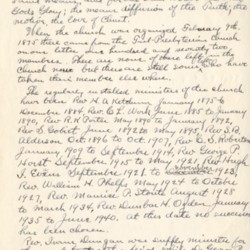 God's Glory; the means, diffusion of the Truth; the
motive, the Love of Christ.
When the church was organized February 9th,
1875 there came from the First Presbyterian Church
one letter, one hundred and seventy two
members. There are none of these left in the
church now but there are still some who have
taken their number else where.
The regularly installed ministers of the church
have been: Rev H. A. Ketchum January 1875 to
December 1884, Rev C. E. Work June 1885 to January
1890, Rev R. H. Potter May 1890 to January 1892,
Rev D. Gobit June 1892 to May 1895, Rev J. D.
Alderson Oct 1896 to 1907, Rev L. D. Houston
January 1909 to September 1914, Rev George P.
Horst September 1915 to May 1921, Rev Hugh
J. Evans September 1921 to 1923,
Rev. William H. Phelps May 1924 to October
1927, Rev. to August 1928
to March 1934, Rev Dunbar H. Ogden January
1935 to June 1940. At this date no successor
has been chosen.
Rev. Duncan was supply minister for